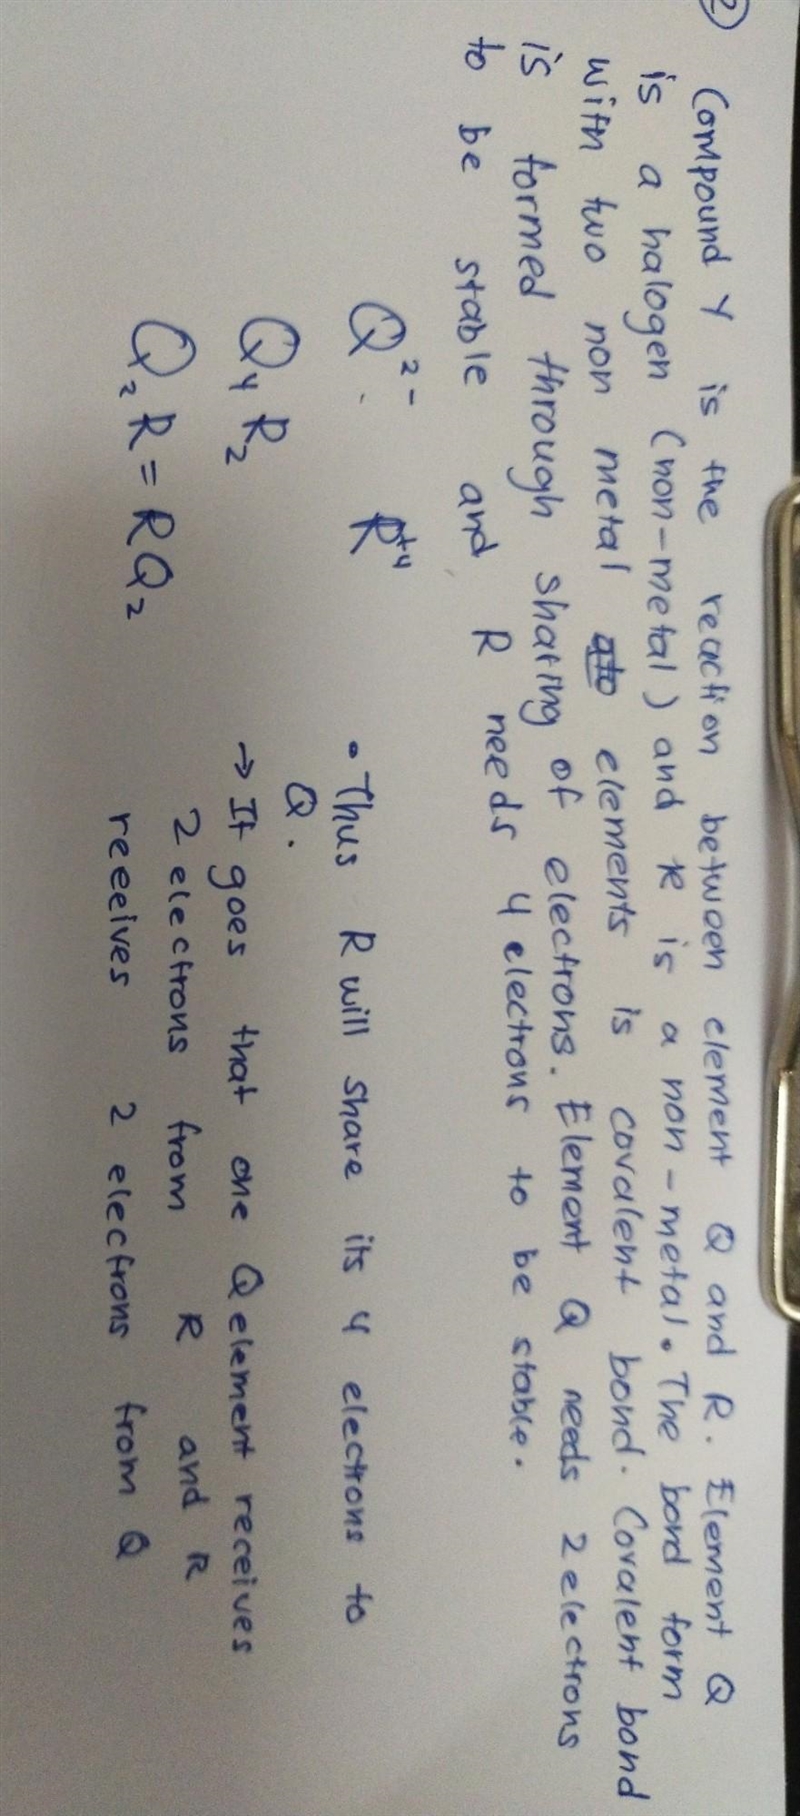 2 Compound Y is the reaction between element Q and R. Element Q
is a halogen (non-metal) and R is a non-metal. The bond form
with two non metal elements is covalent bond. Covalent bond
is formed through sharing of electrons. Element Q needs 2 electrons
to be stable and R needs 4 electrons to be stable.
Q²⁻ R⁺⁴
Q₄R₂
Q₂R = RQ₂
• Thus R will share its 4 electrons to
Q.
→ It goes that one Q element receives
2 electrons from R and R
receives 2 electrons from Q